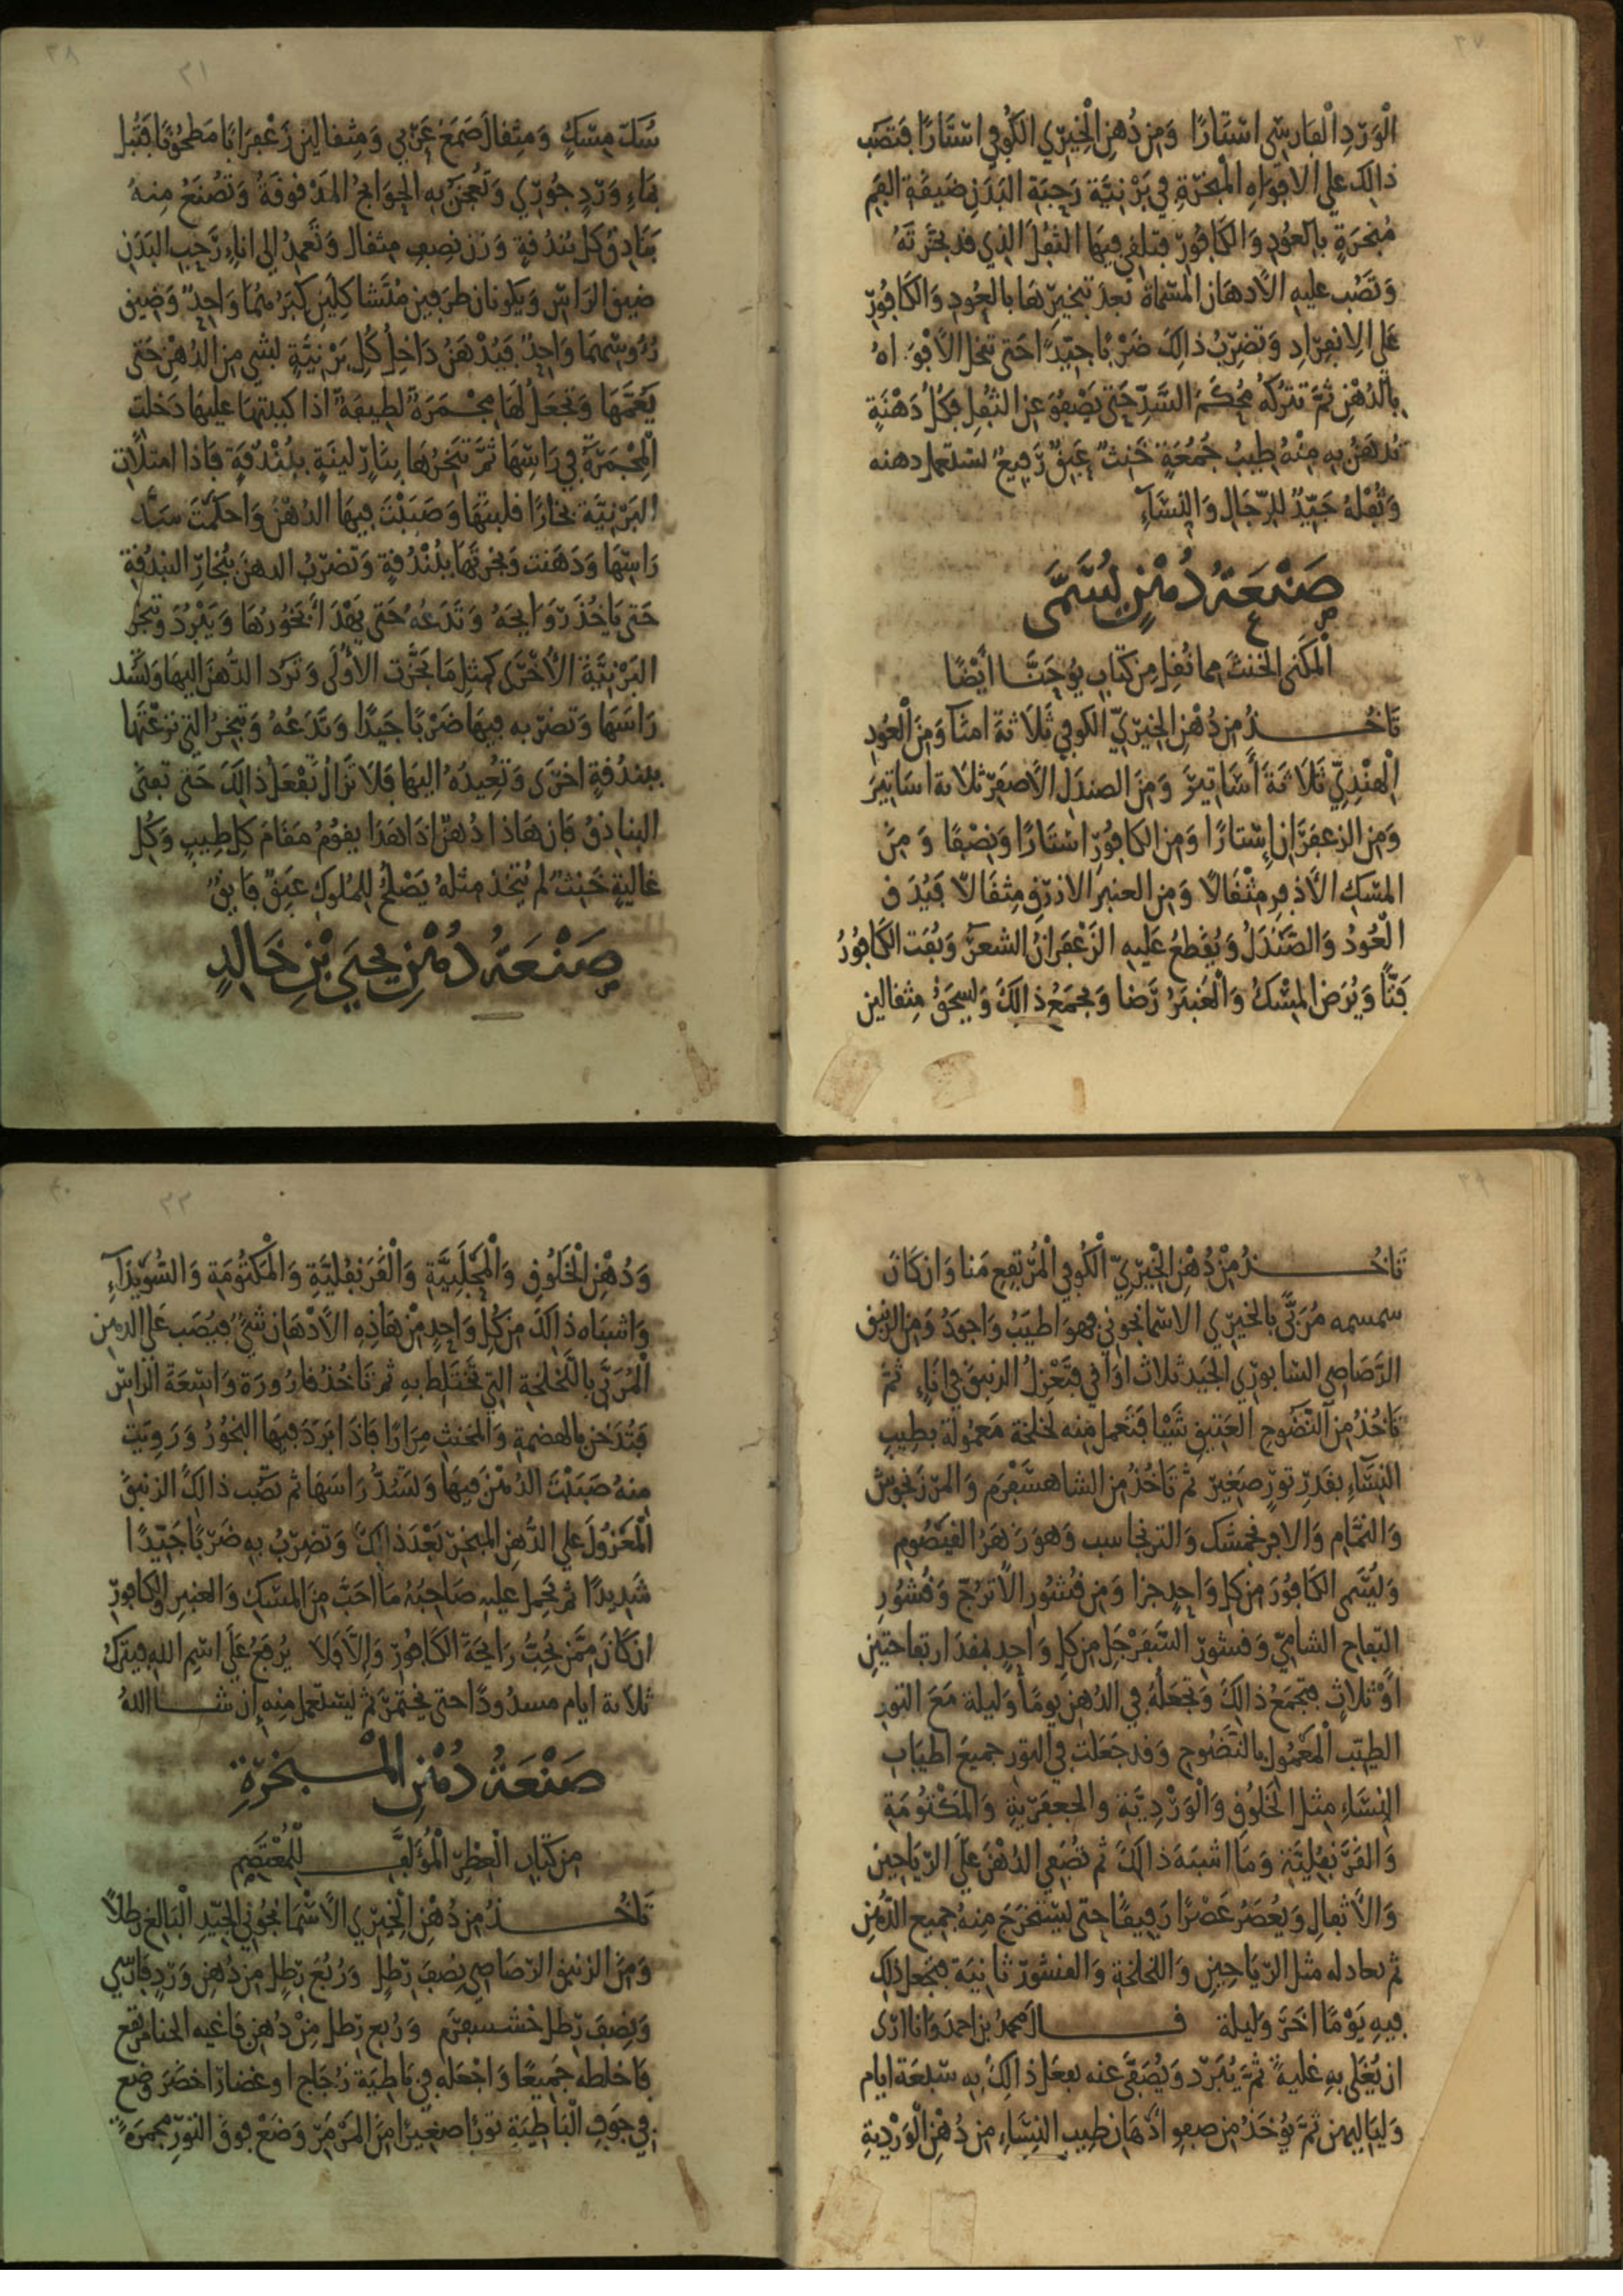 ٣٧
الْوَرْدِ الفارسي استارًا ومن دُهن الخيري الكوفي استارًا فتصب
ذالك على الافواه المبخرة في برنية رحبة البدن ضيقة الفم
مُبخرة بالعُود والكافور فتلقي فيها الثفل الذي قد بخرته
وتصُب عليه الأدهان المسماة بعد تبخيرها بالعود والكافور
على الانفراد وتضرب ذالك ضربًا جيدًا حتى تنحل الأفواه
بالدُهن ثم تتركه مُحكم السد حتى يصفو عن الثفل فكل دهنة
تدهن به منه طيب جُمُعة خنث عبق رفيع يستعمل دهنه
وثُفله جيد للرجال والنساء
صَنْعَةُ دُهْنٍ يُسَمَّى
المكنى الخنث مما نُقل من كتاب يوحنا أيضًا
تأخذ من دُهن الخيري الكوفي ثلاثة امنا ومن العُود
الهندي ثلاثة أساتير ومن الصندل الأصفر ثلاثة اساتير
ومن الزعفران إستارًا ومن الكافور استارًا ونصفًا ومن
المسك الأذفر مثقالا ومن العنبر الازرق مثقالا فيُدق
العُود والصندل ويُقطع عليه الزعفران الشعر ويُفت الكافور
فتًّا ويُرض المسك والعنبر رضا ويجمع ذالك ويسحق مثقالين
٣٨
٣١
سُك مسك ومثقال صمغ عربي ومثقالين زعفرانا مطحونا فتُبل
بماء ورد جُوري وتُعجن به الحوايج المدقوقة وتصنع منه
بنادق كل بندقة وزن نصف مثقال وتعمد إلى اناء رحب البدن
ضيق الراس ويكونان ظرفين متشاكلين كبرهما واحد وضيق
رءوسهما واحد فيُدهن داخل كل برنية بشي من الدهن حتى
يعمها وتجعل لها مجمرة لطيفة اذا كببتها عليها دخلت
المجمرة في راسها ثم تبخرها بنار لينة ببندقة فاذا امتلأت
البرنية بخارًا قلبتها وصببت فيها الدهن واحكمت سد
راسها ودهنت وبخرتها ببندقة وتضرب الدهن ببخار البندقة
حتى ياخذ روايحه وتدعه حتى يهدأ بخورها ويبرد وتبخر
البرنية الأخرى كمثل ما بخرت الأولى وترد الدهن اليها وتشد
راسها وتضربه فيها ضربًا جيدًا وتدعه وتبخر التي نزعتها
ببندقة اخرى وتعيده اليها فلا تزال تفعل ذالك حتى تفنى
البنادق فان هاذا دُهن اذا هدا يقوم مقام كل طيب وكل
غالية خنث لم يتخذ مثله يصلح للملوك عبق فايق
صَنْعَةُ دُهْنِ يحيى بْنِ خَالِدٍ
٣٩
تأخذ من دُهن الخيري الكوفي المرتفع منا وان كان
سمسمه مُربًّى بالخيري الاسمانجوني فهو اطيب واجود ومن الزنبق
الرصاصي السابوري الجيد ثلاث اواقي فتعزل الزنبق في اناء ثم
تأخذ من النضوح العتيق شيئا فتعمل منه لخلخة معمولة بطيب
النساء بقدر تور صغير ثم تأخذ من الشاهسفرم والمرزنجوش
والنمام والافرنجمشك والترنجاسب وهو زهر القيصوم
ويُسمى الكافور من كل واحد جزا ومن قشور الأترج وقشور
التفاح الشامي وقشور السفرجل من كل واحد مقدار تفاحتين
أو ثلاث فتجمع ذالك وتجعله في الدهن يومًا وليلة مع التور
الطيب المعمول بالنضوح وقد جعلت في التور جميع اطياب
النساء مثل الخلوق والوردية والجعفرية والمكتومة
والقرنفلية وما اشبه ذالك ثم تصفي الدهن على الرياحين
والأثفال ويُعصر عصرًا رقيقًا حتى يستخرج منه جميع الدُهن
ثم تعاد له مثل الرياحين واللخلخة والقشور ثانية فتجعل ذلك
فيه يومًا اخر وليلة قال محمد بن احمد وانا ارى
ان يُغلى به غلية ثم يُبرد ويُصفى عنه يفعل ذالك به سبعة ايام
ولياليهن ثم يُوخذ من صفو ادهان طيب النساء من دُهن الوردية
٤٠
٣٣
ودُهن الخلوق والمُحلبية والقرنفلية والمكتومة والشويزاء
واشباه ذالك من كل واحد من هاذه الأدهان شي فيُصب على الدهن
المربى باللخلخة التي تختلط به ثم تأخذ قارورة واسعة الراس
فتُدخن بالهضمة والمخنث مرارًا فاذا برد فيها البخور ورويت
منه صببت الدُهن فيها وتشد راسها ثم تصب ذالك الزنبق
المعزول على الدهن المبخر بعد ذالك وتضرب به ضربًا جيدًا
شديدًا ثم يحمل عليه صاحبه ما احب من المسك والعنبر والكافور
ان كان ممن يُحب رايحة الكافور وإلا فلا يُرفع على اسم الله فيترك
ثلاثة ايام مسدودًا حتى يختمر ثم يستعمل منه إن شا الله
صَنْعَةُ دُهْنِ المْبخرَةِ
من كتاب العطر المؤلف للمعتصم
تأخذ من دُهن الخيري الأسمانجوني الجيد البالغ رطلاً
ومن الزنبق الرصاصي نصف رطل ورُبع رطل من دُهن ورد فارسي
ونصف رطل خشسبرم ورُبع رطل من دُهن فاغيه الحنا مرتفع
فاخلطه جميعًا واجعله في باطية زجاج او غضار اخضر وضع
في جوف الباطية تورًا صغيرًا من المرمر وضع فوق التور مجمرة